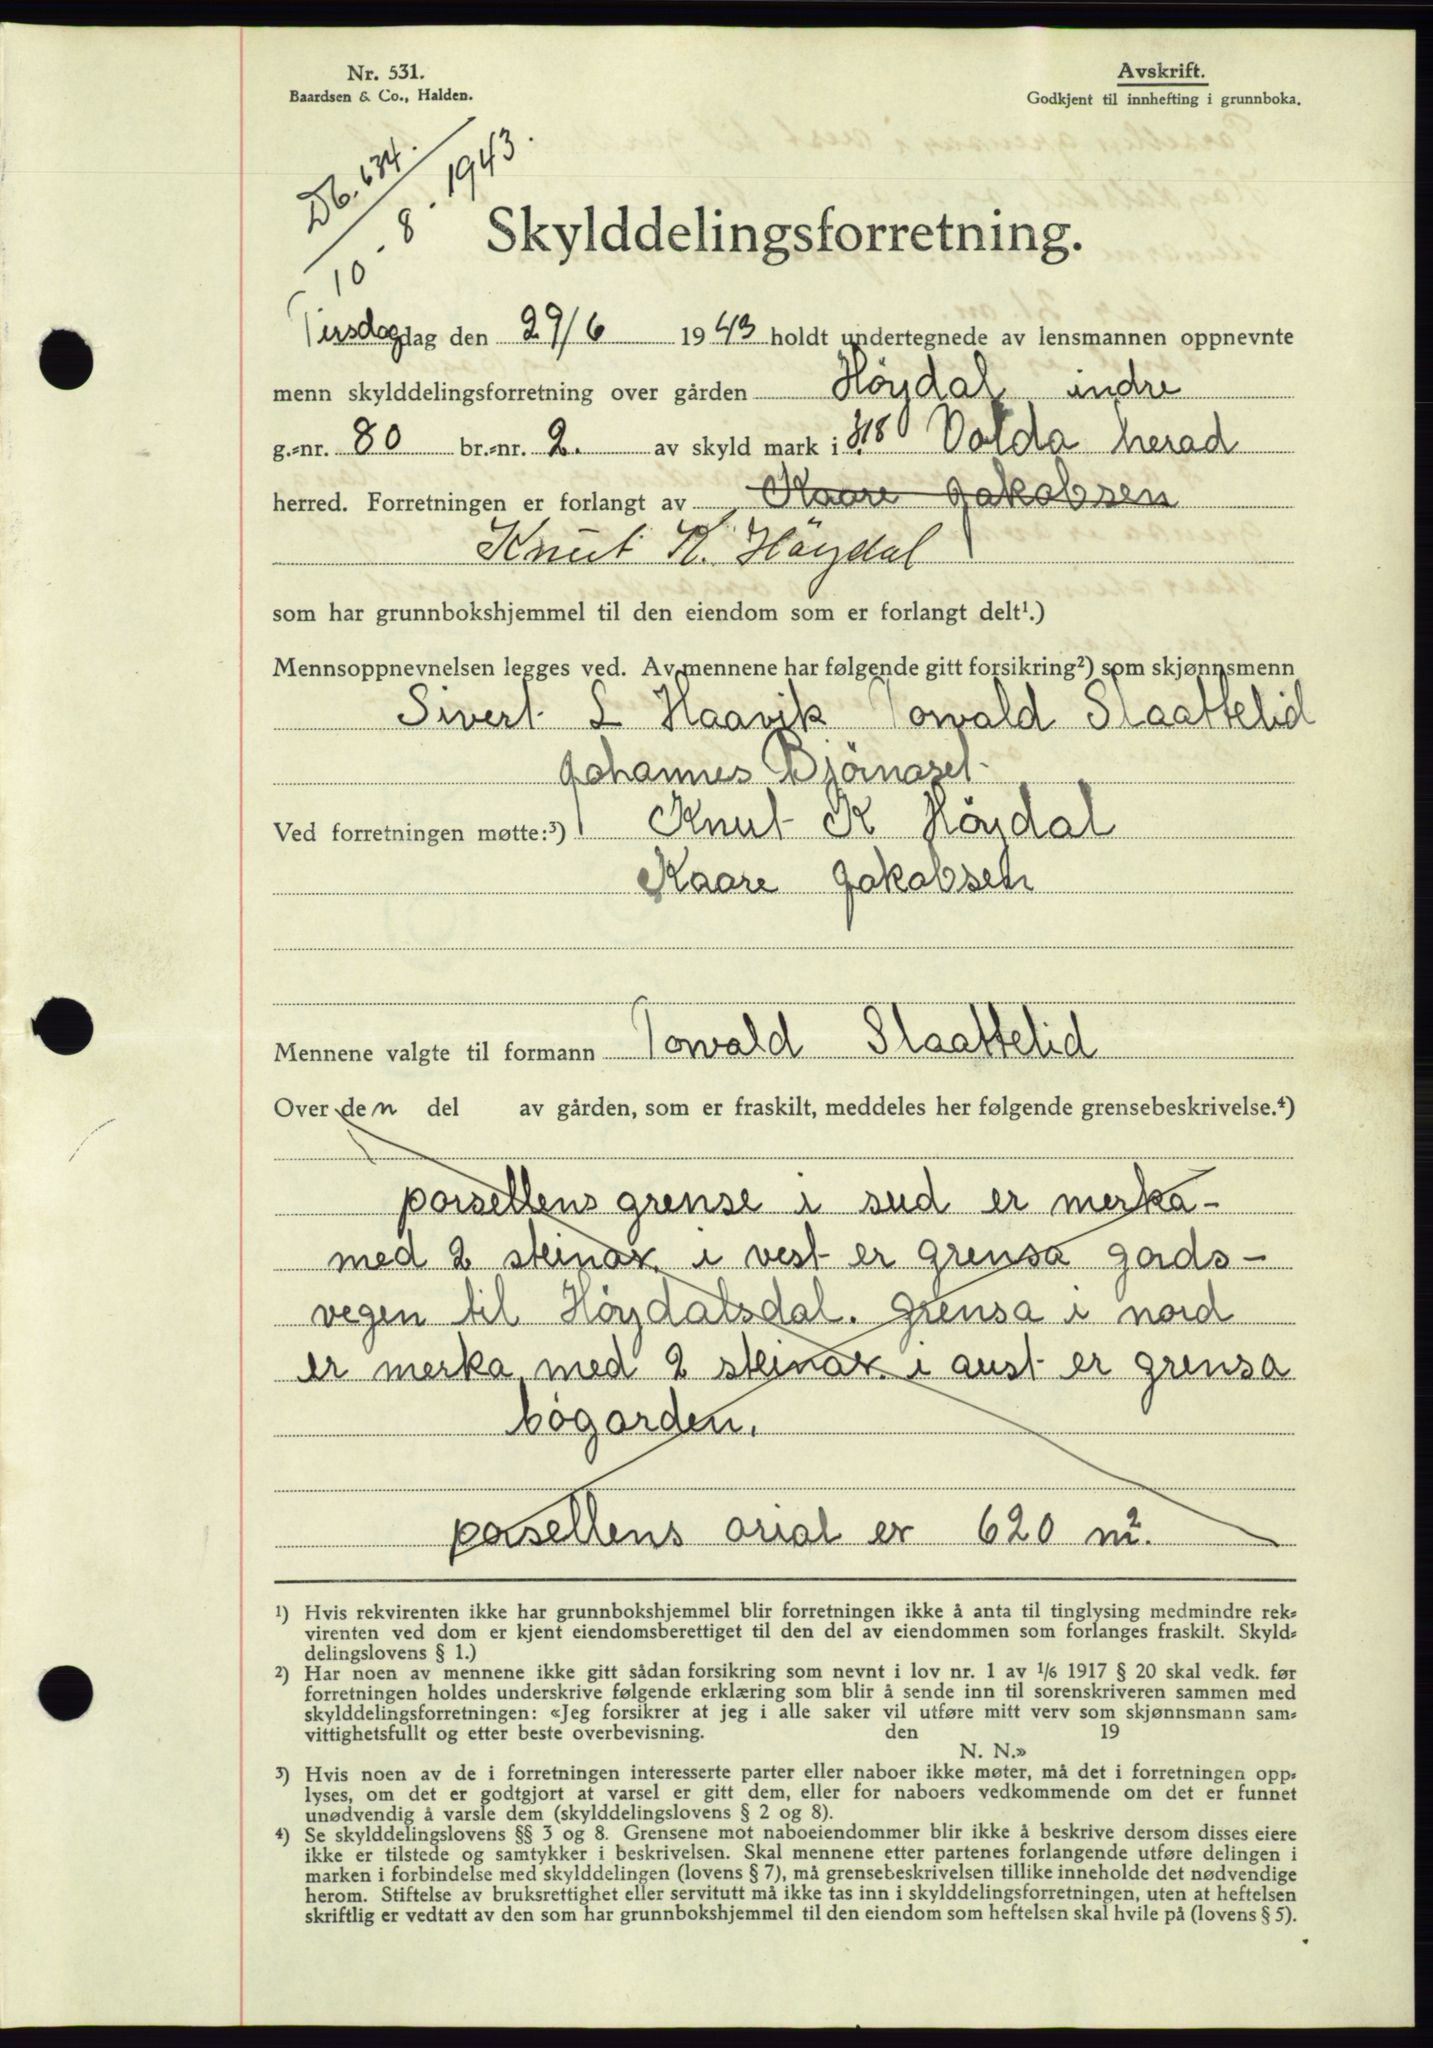 Nr. 531.
Baardsen & Co., Halden.
Avskrift.
Godkjent til innhefting i grunnboka.
Db. 634.
10 - 8 - 1943.
Skylddelingsforretning.
Tirsdag dag den 29/6 1943 holdt undertegnede av lensmannen oppnevnte
menn skylddelingsforretning over gården Höydal indre
g.-nr. 80 br.-nr. 2. av skyld mark i Volda herad
herred. Forretningen er forlangt av Kaare Jakobsen
Knut K. Höydal
som har grunnbokshjemmel til den eiendom som er forlangt delt¹.)
Mennsoppnevnelsen legges ved. Av mennene har følgende gitt forsikring²) som skjønnsmenn
Sivert L Haavik Torvald Slaattelid
Johannes Björnaset
Ved forretningen møtte:³) Knut K Höydal
Kaare Jakobsen
Mennene valgte til formann Torvald Slaattelid
Over den del av gården, som er fraskilt, meddeles her følgende grensebeskrivelse.⁴)
parsellens grense i sud er merka-
med 2 steinar. i vest er grensa gards-
vegen til Höydalsdal. grensa i nord
er merka med 2 steinar. i aust er grensa
bögarden.
parsellens arial er 620 m².
¹) Hvis rekvirenten ikke har grunnbokshjemmel blir forretningen ikke å anta til tinglysing medmindre rek-
virenten ved dom er kjent eiendomsberettiget til den del av eiendommen som forlanges fraskilt. Skyld-
delingslovens § 1.)
²) Har noen av mennene ikke gitt sådan forsikring som nevnt i lov nr. 1 av ¹/6 1917 § 20 skal vedk. før
forretningen holdes underskrive følgende erklæring som blir å sende inn til sorenskriveren sammen med
skylddelingsforretningen: «Jeg forsikrer at jeg i alle saker vil utføre mitt verv som skjønnsmann sam-
vittighetsfullt og etter beste overbevisning. den 19
N. N.»
³) Hvis noen av de i forretningen interesserte parter eller naboer ikke møter, må det i forretningen opp-
lyses, om det er godtgjort at varsel er gitt dem, eller for naboers vedkommende om det er funnet
unødvendig å varsle dem (skylddelingslovens § 2 og 8).
⁴) Se skylddelingslovens §§ 3 og 8. Grensene mot naboeiendommer blir ikke å beskrive dersom disses eiere
ikke er tilstede og samtykker i beskrivelsen. Skal mennene etter partenes forlangende utføre delingen i
marken i forbindelse med skylddelingen (lovens § 7), må grensebeskrivelsen tillike inneholde det nødvendige
herom. Stiftelse av bruksrettighet eller servitutt må ikke tas inn i skylddelingsforretningen, uten at heftelsen
skriftlig er vedtatt av den som har grunnbokshjemmel til den eiendom som heftelsen skal hvile på (lovens § 5).